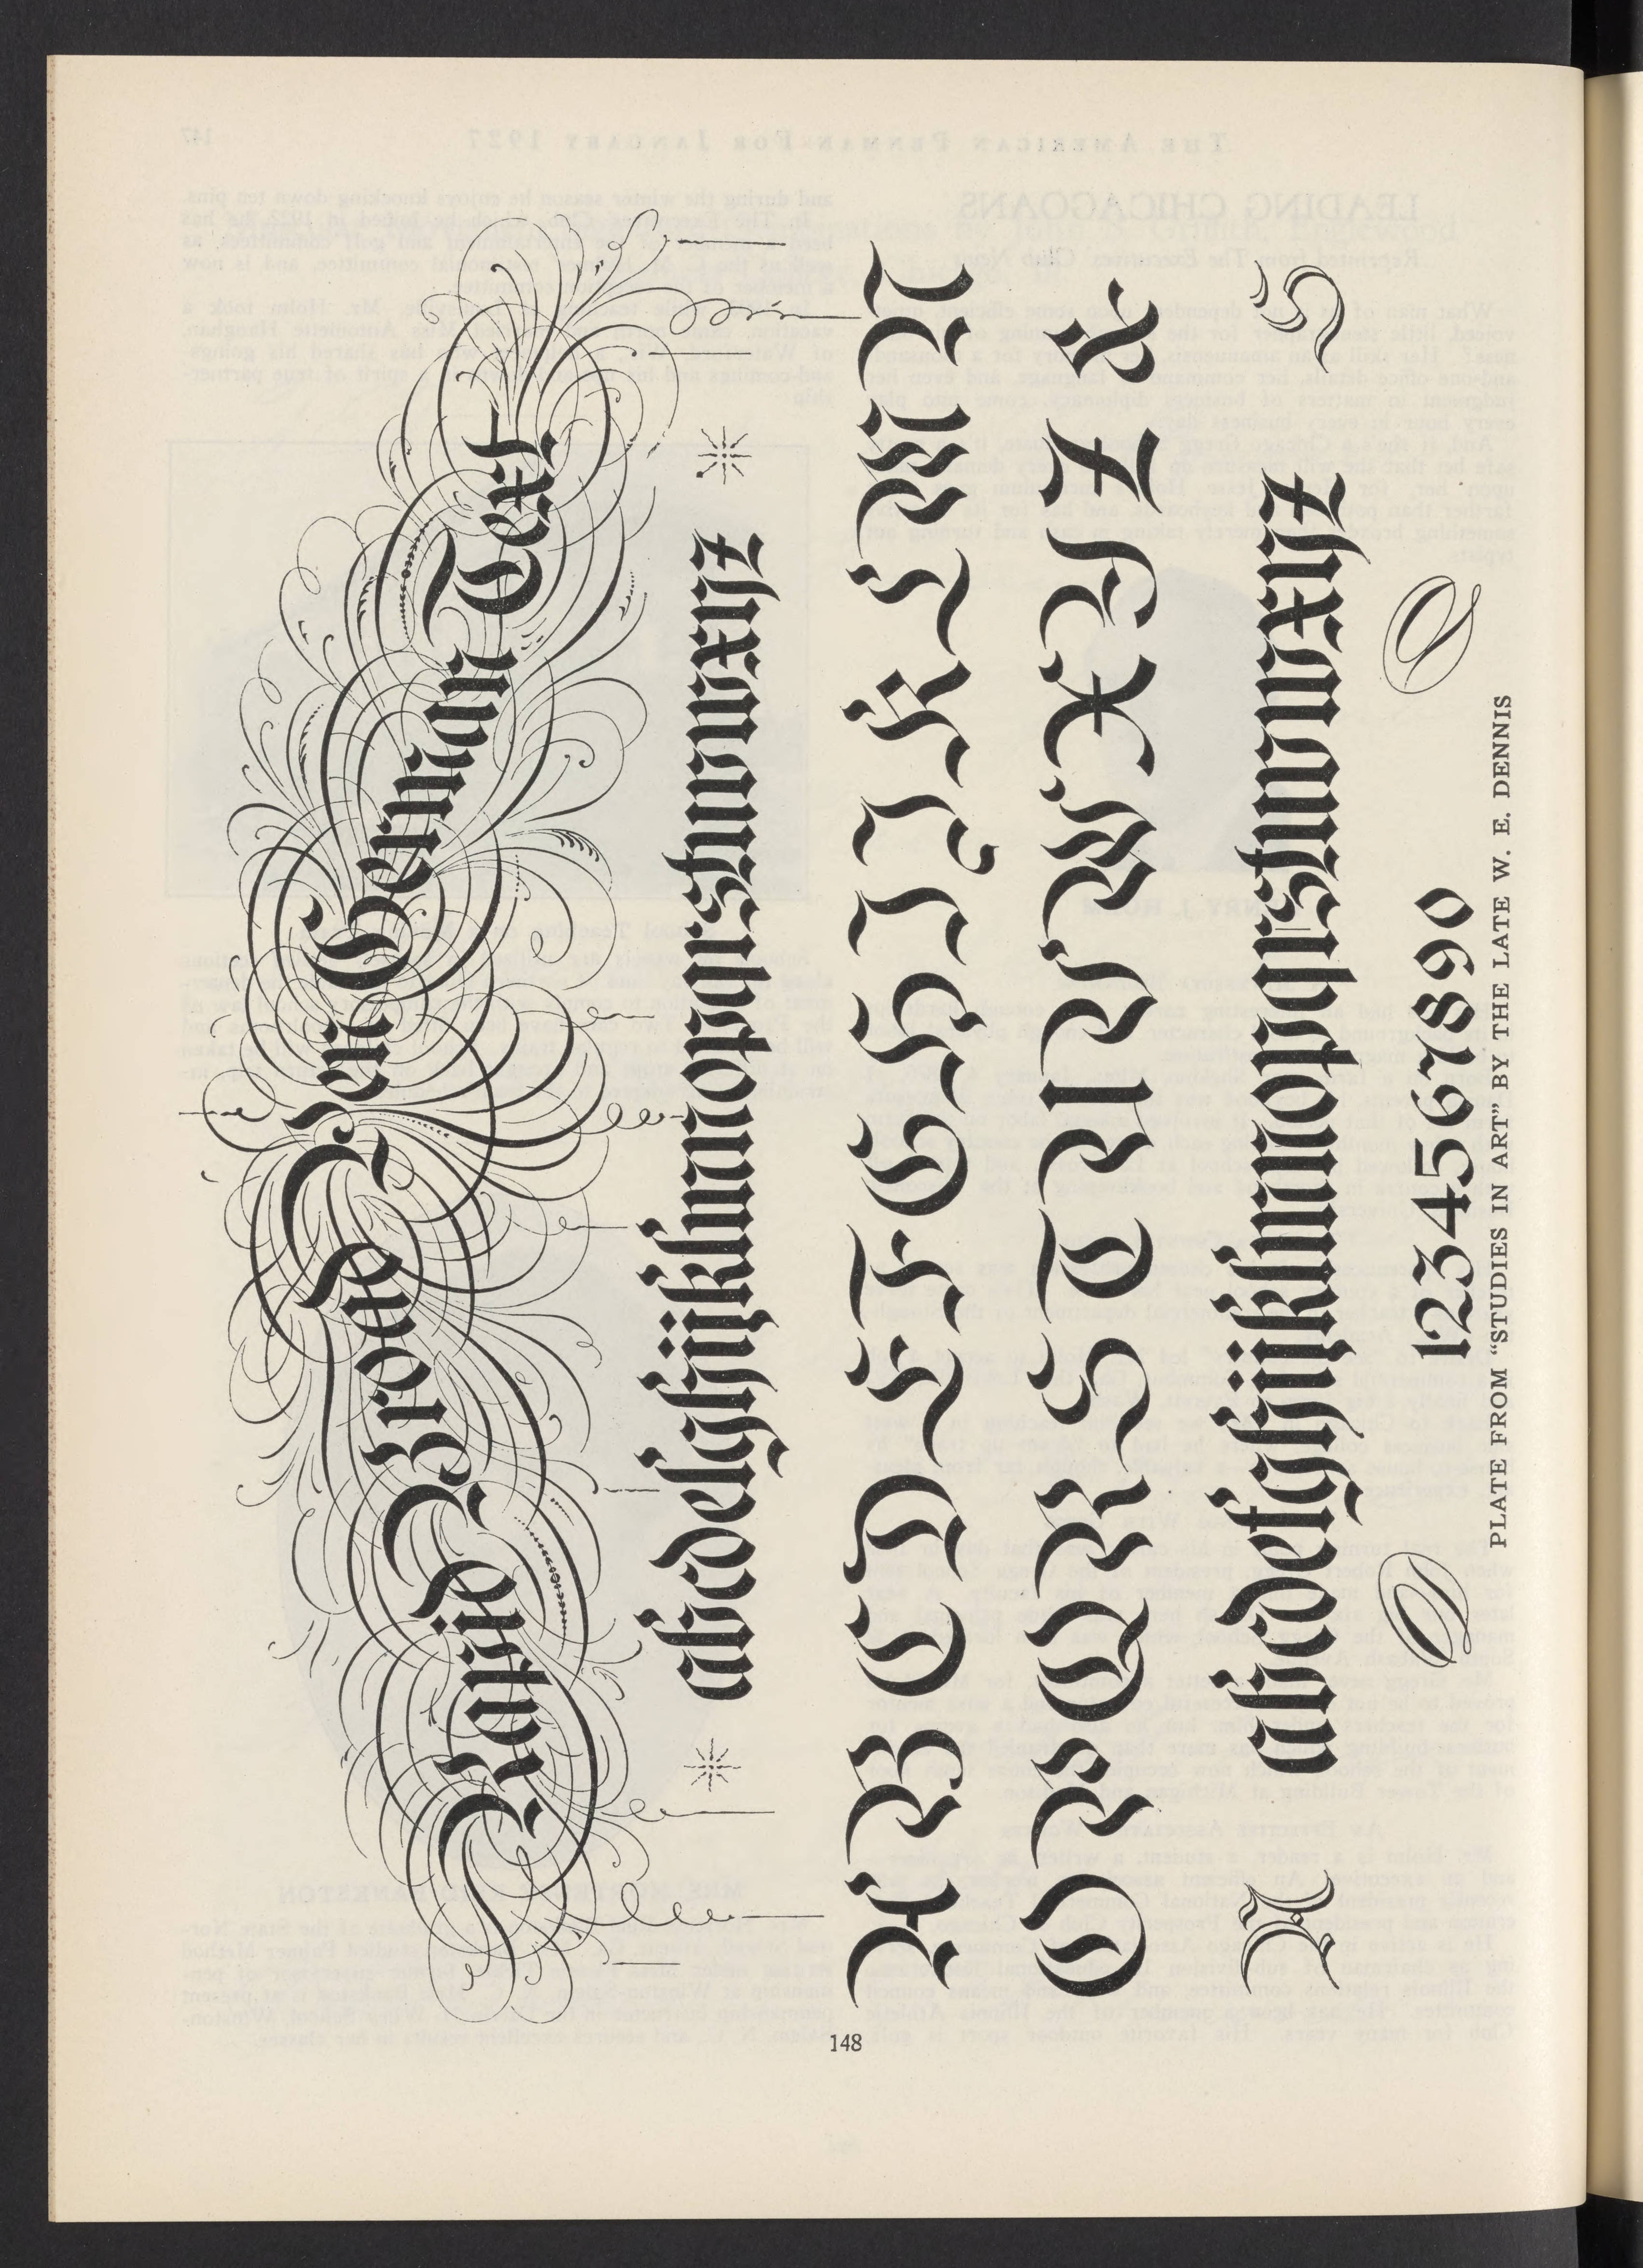 Rapid Broad Pen German Text
abcdefghijklmnopqrstuvwxyz
A B C D E F G H I J K L M N
O P Q R S T U V W X Y Z &
A abcdefghijklmnopqrstuvwxyz S
1234567890
PLATE FROM "STUDIES IN ART" BY THE LATE W. E. DENNIS
148